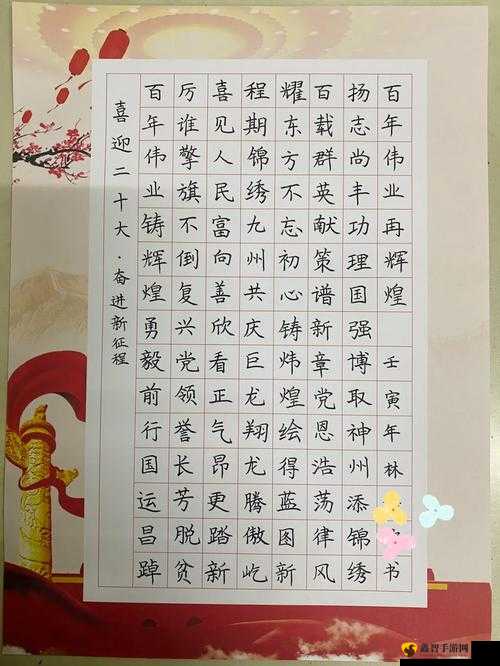 喜迎二十大·奋进新征程
百年伟业铸辉煌勇毅前行国运昌踔
厉谁擎旗不倒复兴党领誉长芳脱贫
喜见人民富向善欣看正气昂更踏新
程期锦绣九州共庆巨龙翔龙腾傲屹
耀东方不忘初心铸炜煌绘得蓝图新
百载群英献策谱新章党恩浩荡律风
扬志尚丰功理国强博取神州添锦绣
百年伟业再辉煌 壬寅年林书
鑫智手游网